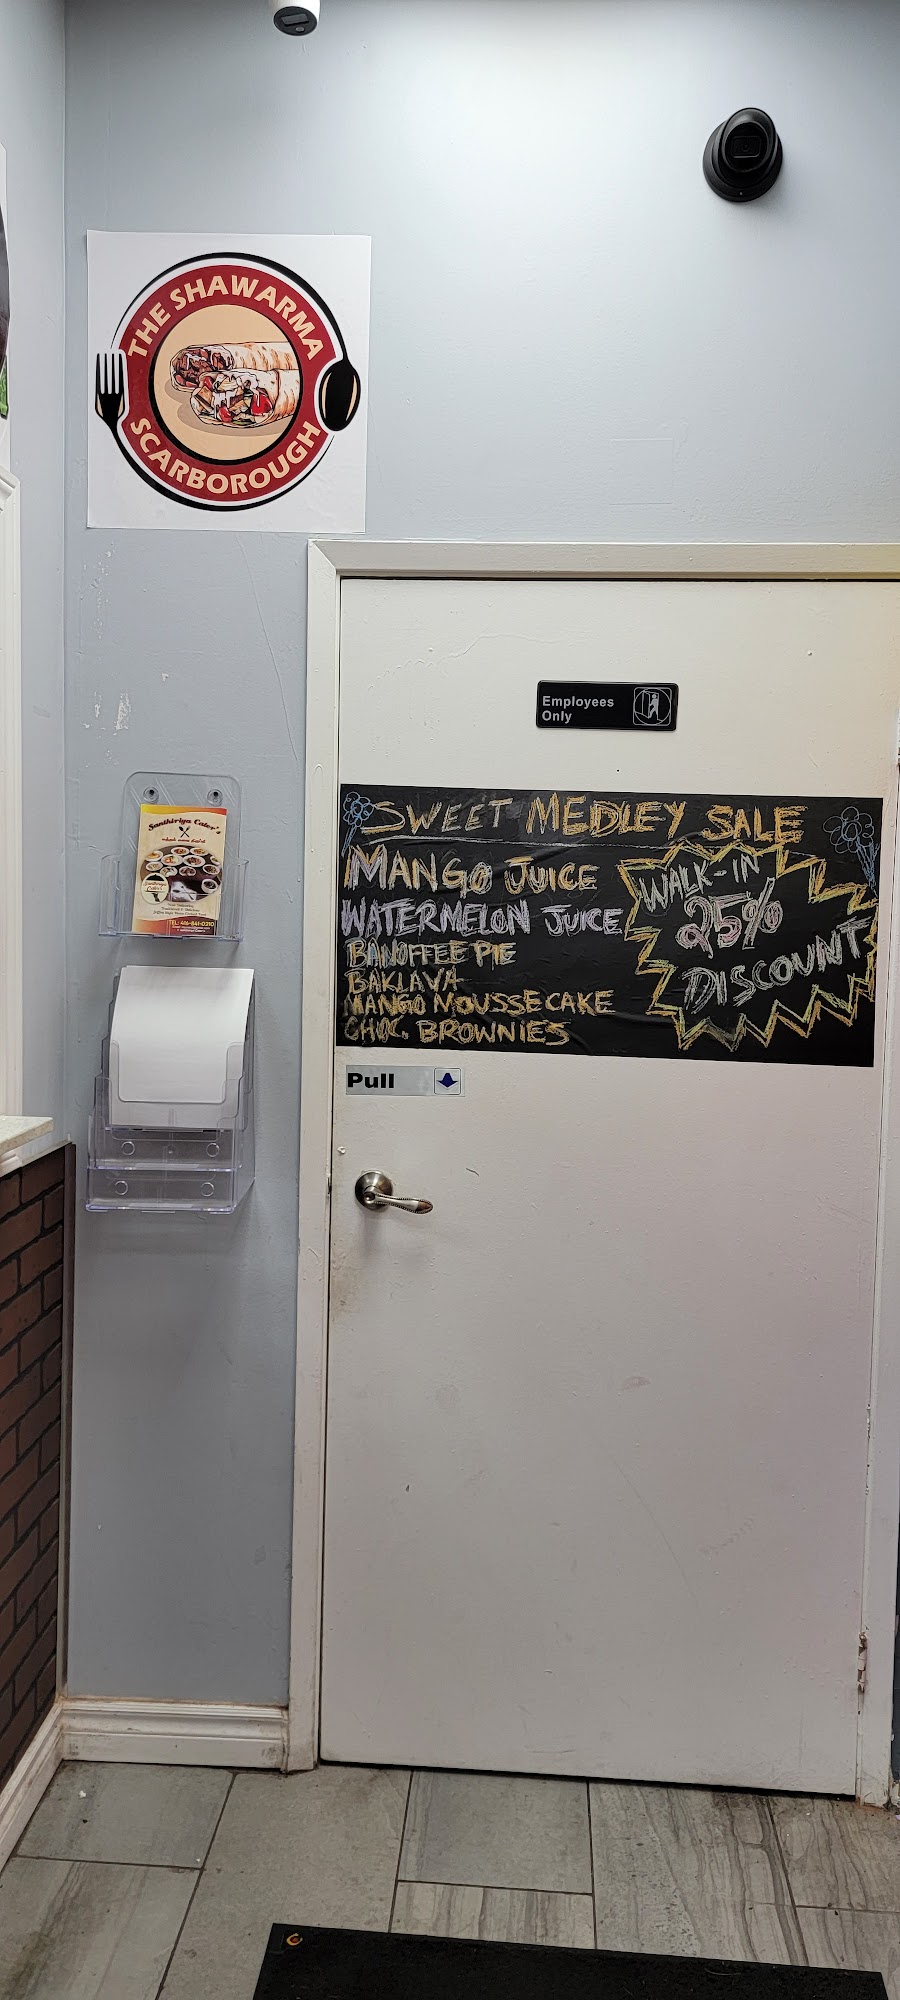 THE SHAWARMA
SCARBOROUGH
Employees
Only
SWEET MEDLEY SALE
MANGO JUICE
WATERMELON JUICE
BANOFFEE PIE
BAKLAVA
MANGO MOUSSECAKE
CHOC. BROWNIES
WALK-IN
25%
DISCOUNT
Santhiriya Cater's
TEL: 416-841-0210
Pull